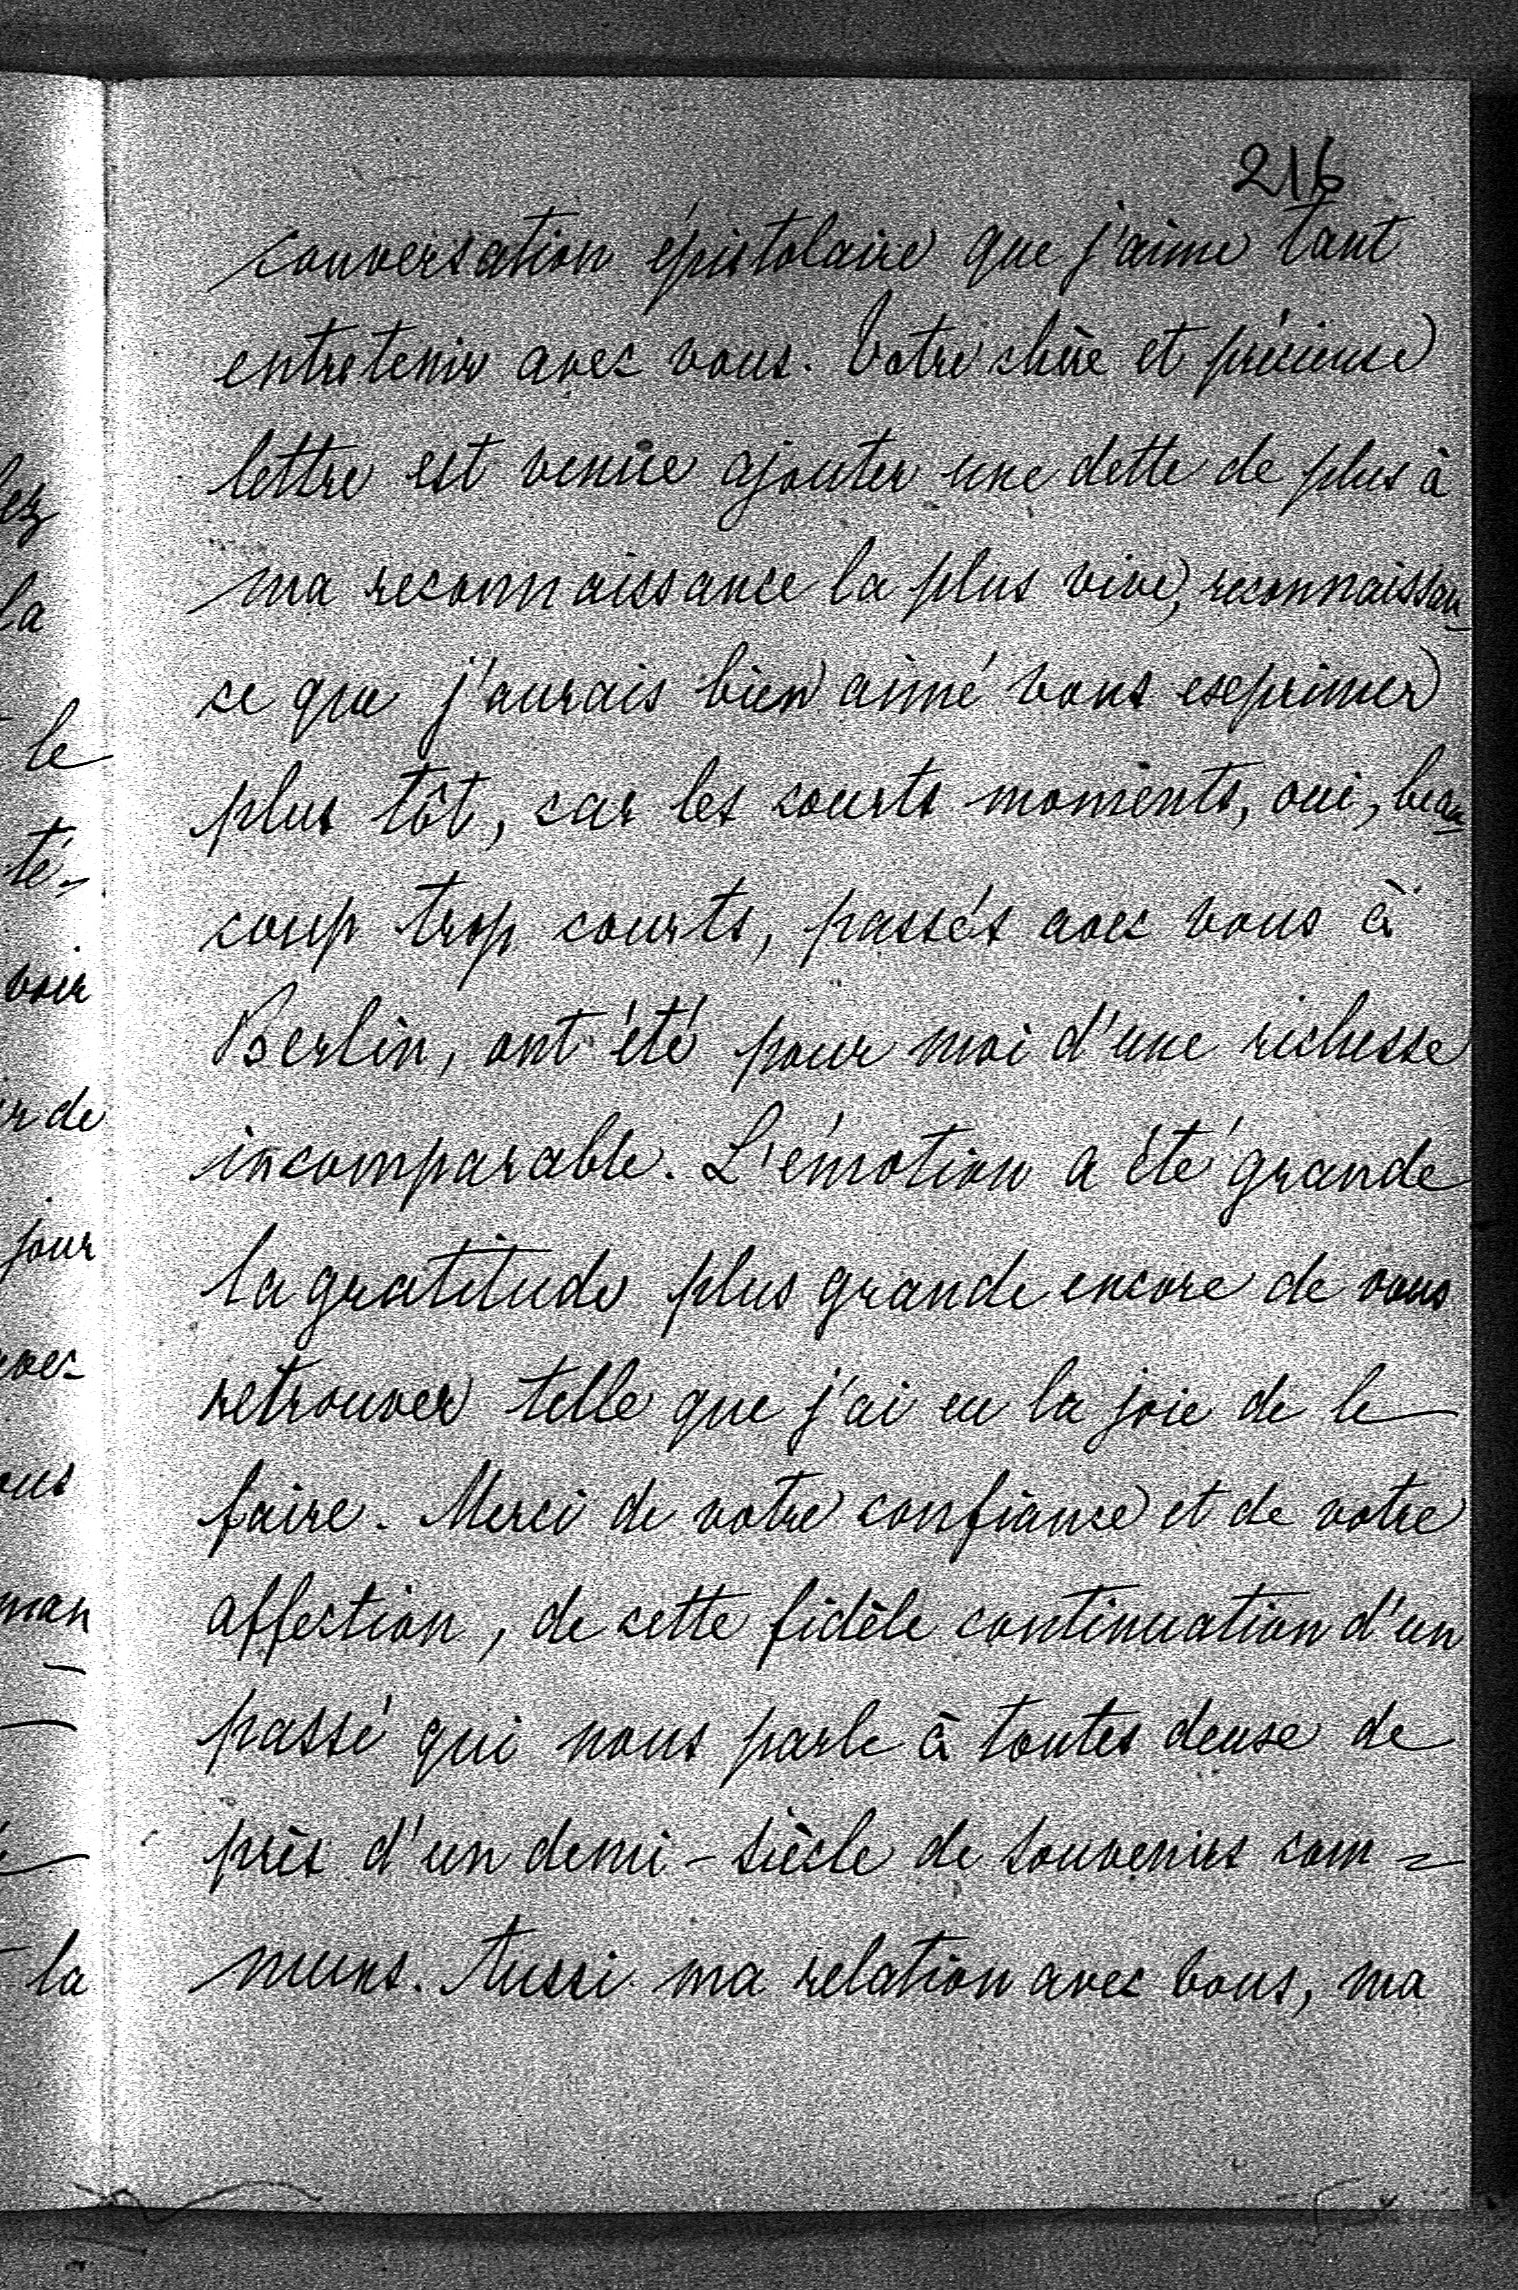 216
conversation épistolaire que j'aime tant
entretenir avec vous. Votre chère et précieuse
lettre est venue ajouter une dette de plus à
ma reconnaissance la plus vive, reconnaissan-
ce que j'aurais bien aimé vous exprimer
plus tôt, car les courts moments, oui, beau-
coup trop courts, passés avec vous à
Berlin, ont été pour moi d'une richesse
incomparable. L'émotion a été grande
la gratitude plus grande encore de vous
retrouver telle que j'ai eu la joie de le
faire. Merci de votre confiance et de votre
affection, de cette fidèle continuation d'un
passé qui nous parle à toutes deux de
près d'un demi-siècle de souvenirs com-
muns. Aussi ma relation avec vous, ma